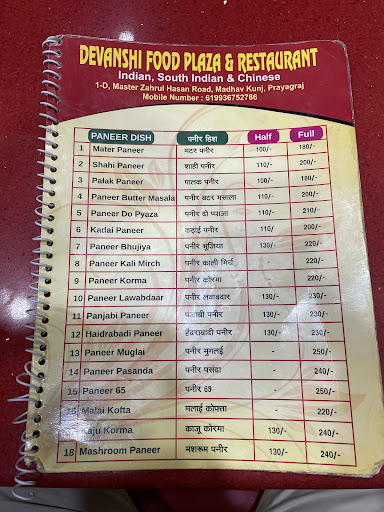 DEVANSHI FOOD PLAZA & RESTAURANT
Indian, South Indian & Chinese
1-D, Master Zahrul Hasan Road, Madhav Kunj, Prayagraj
Mobile Number : 619936752786
PANEER DISH पनीर डिश Half Full
1 Mater Paneer मटर पनीर 100/- 180/-
2 Shahi Paneer शाही पनीर 110/- 200/-
3 Palak Paneer पालक पनीर 100/- 180/-
4 Paneer Butter Masala पनीर बटर मसाला 110/- 200/-
5 Paneer Do Pyaza पनीर दो प्याजा 110/- 210/-
6 Kadai Paneer कढ़ाई पनीर 110/ 200/-
7 Paneer Bhujiya पनीर भुजिया 130/- 220/-
8 Paneer Kali Mirch पनीर काली मिर्च - 220/-
9 Paneer Korma पनीर कोरमा 220/-
10 Paneer Lawabdaar पनीर लवाबदार 130/- 230/-
11 Panjabi Paneer पंजाबी पनीर 130/- 230/-
12 Haidrabadi Paneer हैदराबादी पनीर 130/- 230/-
13 Paneer Muglai पनीर मुगलई - 250/-
14 Paneer Pasanda पनीर पसंदा - 240/-
15 Paneer 65 पनीर 65 - 250/-
16 Malai Kofta मलाई कोफ्ता - 220/-
Kaju Korma काजू कोरमा 130/- 240/-
18 Mashroom Paneer मशरूम पनीर 130/- 240/-